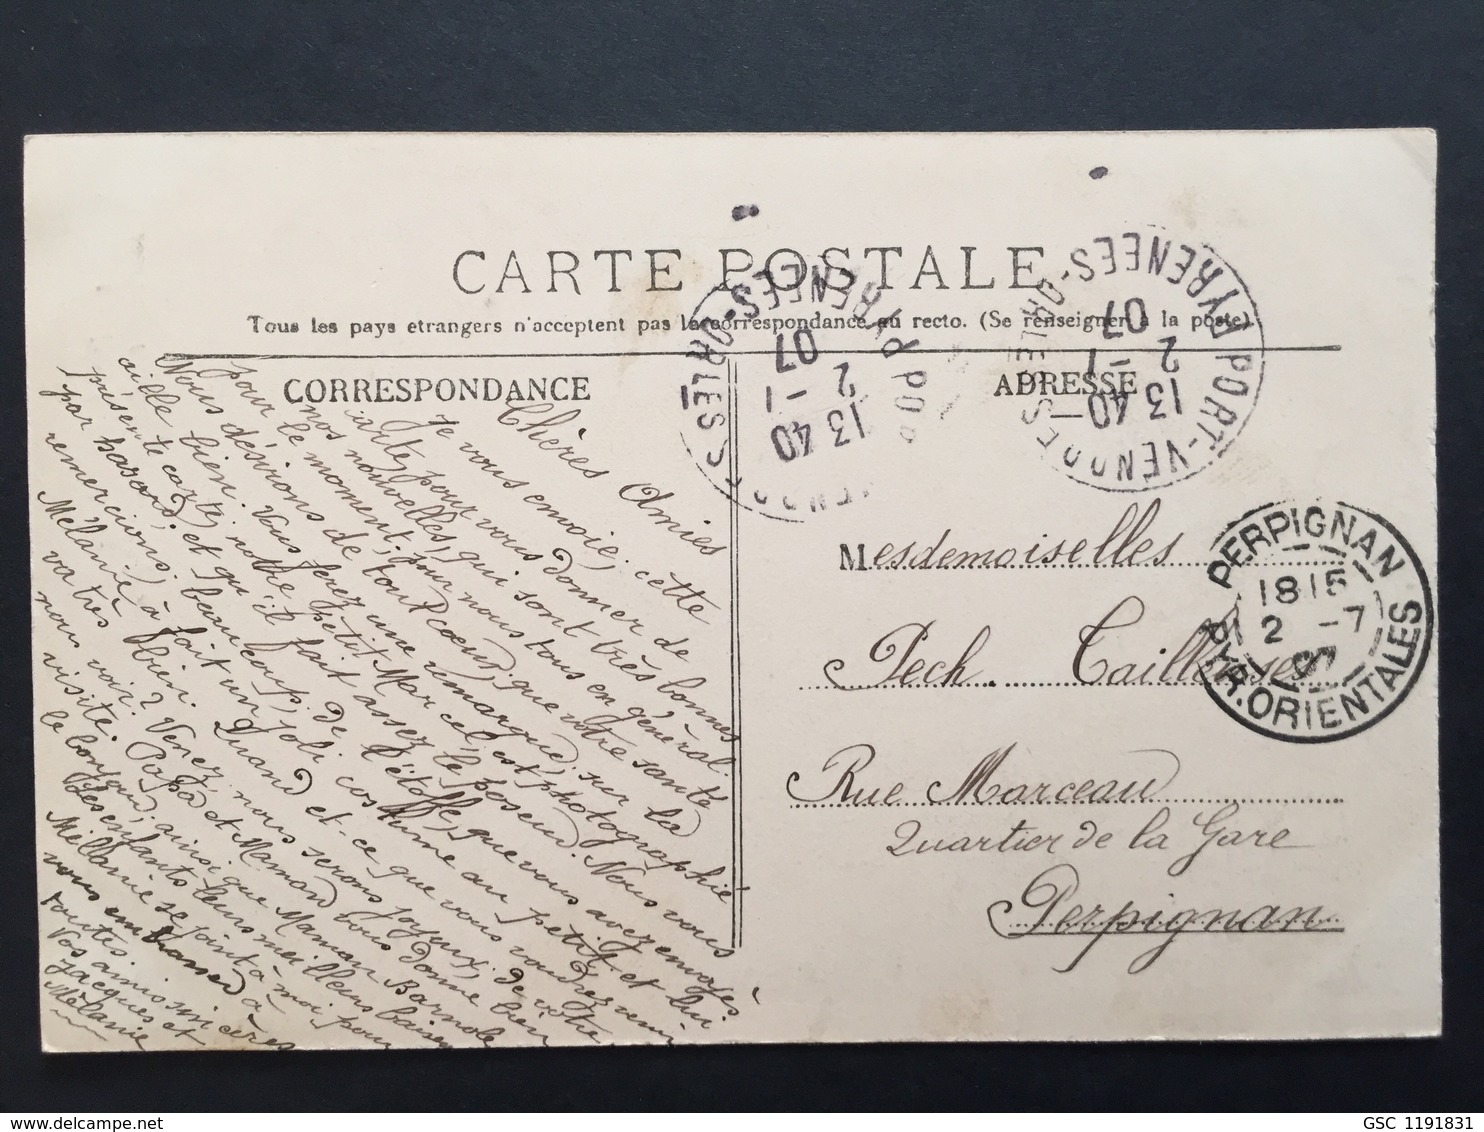 CARTE POSTALE
Tous les pays etrangers n'acceptent pas la correspondance au recto. (Se renseigner à la poste)
CORRESPONDANCE
ADRESSE
Chères Amies
Je vous envoie, cette
carte, pour vous donner de
nos nouvelles, qui sont très bonnes
pour le moment, pour nous tous en général.
Nous désirons de tout cœur, que votre santé
aille bien. Vous ferez une remarque, sur la
présente carte, notre petit Marcel, est photographié
par hasard, et qu'il fait assez le poseur. Nous vous
remercions, beaucoup, de l'étoffe, que vous avez envoyé à
Mélanie, à fait un joli costume au petit et lui
va très bien. Quand est-ce que vous voudrez venir
nous voir? Venez, nous serons joyeux, de votre
visite. Papa et Maman vous donne bien
le bonjour, ainsi que Maman Barnole
Les enfants leurs meilleurs baisers
Mélanie se joint à moi pour
vous embrasser à
toutes.
Vos amis sincères
Jacques et
Mélanie
Mesdemoiselles
Pech. Tailleuses
Rue Marceau
Quartier de la Gare
Perpignan
PORT-VENDRES
PYRENEES-ORLES
13 40
2 -1
07
PORT-VENDRES
PYRENEES-ORLES
13 40
2 -1
07
PERPIGNAN
18 15
2 -7
PYR. ORIENTALES
GSC 1191831